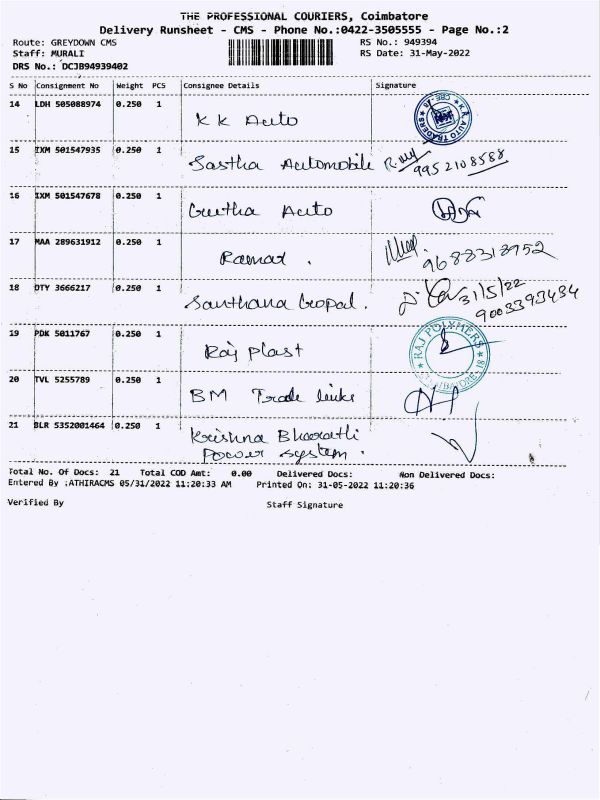 THE PROFESSIONAL COURIERS, Coimbatore
Delivery Runsheet - CMS - Phone No.:0422-3505555 - Page No.:2
Route: GREYDOWN CMS RS No.: 949394
Staff: MURALI RS Date: 31-May-2022
DRS No.: DCJB94939402
S No Consignment No Weight PCS Consignee Details Signature
14 LDH 505088974 0.250 1 K K Auto
K.K. AUTO TRADERS CBE-18
15 IXM 501547935 0.250 1 Sastha Automobile 9952108588
16 IXM 501547678 0.250 1 Geetha Auto
17 MAA 289631912 0.250 1 Ramat . 9688318952
18 DTY 3666217 0.250 1 Santhana Gopal . 31/5/22
9003393434
19 PDK 5011767 0.250 1 Raj Plast
RAJ POLYMERS
20 TVL 5255789 0.250 1 BM Trade links
21 BLR 5352001464 0.250 1 Krishna Bharathi
Power System .
Total No. Of Docs: 21 Total COD Amt: 0.00 Delivered Docs: Non Delivered Docs:
Entered By :ATHIRACMS 05/31/2022 11:20:33 AM Printed On: 31-05-2022 11:20:36
Verified By Staff Signature